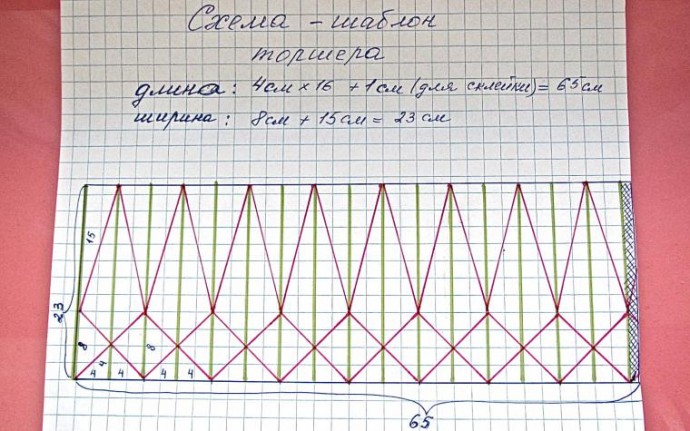 Схема - шаблон
торшера
длина: 4см х 16 + 1см (для склейки) = 65см
ширина: 8см + 15см = 23см
15
23
8 8
4
4 4 4 4
65